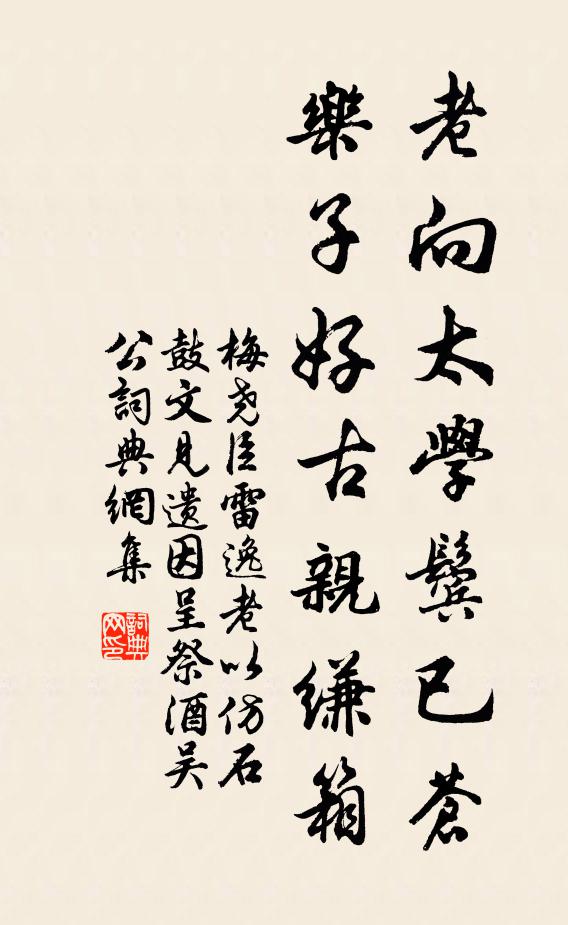 老向太學鬢已蒼
樂子好古親縑箱
梅堯臣雷逸老以仿石
鼓文見遺因呈祭酒吴
公詞典網集
詞典
网印